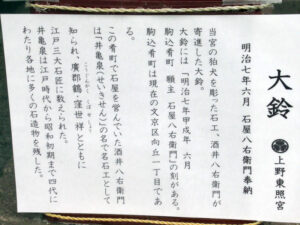 大鈴
上野東照宮
明治七年 六月 石屋八右衛門奉納
当宮の狛犬を彫った石工、酒井八右衛門が
寄進した大鈴。
大鈴には「明治七年甲戌年 六月
駒込肴町 願主 石屋八右衛門」の刻がある。
駒込肴町は現在の文京区向丘一丁目であ
る。
この肴町で石屋を営んでいた酒井八右衛門
は「井亀泉(せいきせん)」の名で名石工として
知られ、廣群鶴、窪世祥とともに
江戸三大石匠に数えられた。
井亀泉は江戸時代から昭和初期まで四代に
わたり各地に多くの石造物を残した。